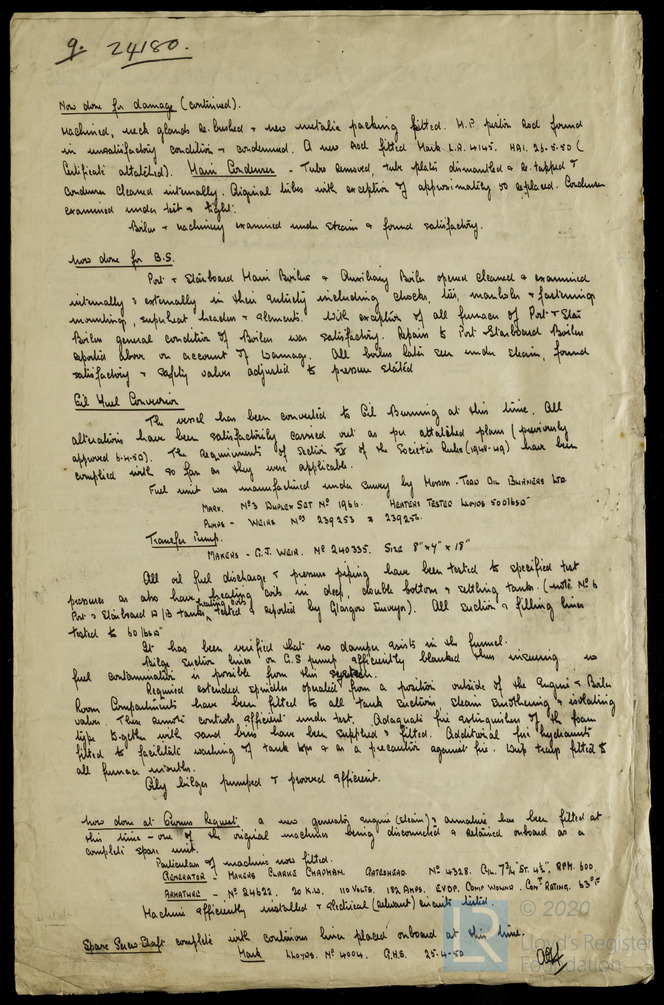 9. 24180.
Now done for damage (continued).
Machined, neck glands re-bushed & new metalic packing fitted. H.P. piston rod found
in unsatisfactory condition & condemned. A new rod fitted Mark. L.R. 4145. HAI. 26-5-50 (
Certificate attatched). Main Condenser - Tubes removed, tube plates dismantled & re-tapped &
Condenser cleaned internally. Original tubes with exception of approximatley 50 replaced. Condenser
examined under test & tight.
Boilers & machinery examined under steam & found satisfactory.
Now done for B.S.
Port & Starboard Main Boilers & Auxiliary Boiler opened cleaned & examined
internally & externally in their entirety including chocks, manholes & fastenings
mountings, superheat headers & elements. With exception of all furnaces of Port & Star
Boilers general condition of Boilers was satisfactory. Repairs to Port Starboard Boilers
reported above on account of Damage. All boilers later seen under steam, found
satisfactory & safety valves adjusted to pressure stated
Oil Fuel Conversion
The vessel has been converted to Oil Burning at this time. All
alterations have been satisfactorily carried out as per attatched plans (previously
approved 6-4-50). The Requirements of Section XX of the Societies Rules (1948-49) have been
complied with so far as they were applicable.
Fuel unit was manufactured under survey by Messrs. Todd Oil Burners Ltd.
MARK. No 3 DUPLEX SET No 1966. HEATERS TESTED LLOYDS 500 lbs □"
PUMPS - WEIRS Nos 239253 & 239255.
Transfer Pump.
MAKERS - G.J. WEIR. No 240335. SIZE 8" x 4" x 18"
All oil fuel discharge & pressure piping have been tested to specified test
pressures as also have heating coils in deep, double bottom & settling tanks. (note No 6
Port & Starboard D/B tanks heating coils tested & reported by Glasgow Surveyor). All suction & filling lines
tested to 60 lbs □"
It has been verified that no damper exists in the funnel.
Bilge suction lines on G.S pump efficiently blanked thus insuring no
fuel contamination is possible from this system.
Required extended spindles operated from a position outside of the Engine & Boiler
Room Compartments have been fitted to all tank suctions, steam smothering & isolating
valves. These remote controls efficient under test. Adaquate fire extinguishers of the foam
type together with sand bins have been supplied & fitted. Additional fire hydrants
fitted to facilitate washing of tank tops & as a precaution against fire. Drip trays fitted to
all furnace mouths.
Oily bilges pumped & proved efficient.
Now done at Owners Request a new generator engine (steam) & armature has been fitted at
this time - one of the original machines being disconnected & retained onboard as a
complete spare unit.
Particulars of machine now fitted.
GENERATOR - MAKERS CLARKE CHAPMAN. GATESHEAD. No 4328. Cyl. 7¾" ST. 4½", RPM. 600.
ARMATURE - No 24622. 20 K.W. 110 VOLTS. 182 AMPS. COMP WOUND. CONT RATING.
Machine efficiently installed & electrical (relevant) circuits tested.
Spare Screw Shaft complete with continuous liner placed onboard at this time.
Mark LLOYDS. No 4004. G.H.S. 25-4-50
© 2020
LR
Lloyd's Register
Foundation